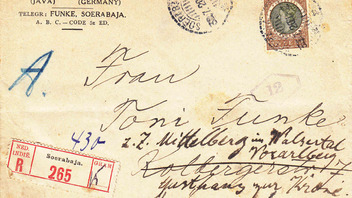 (JAVA) (GERMANY)
TELEGR: FUNKE, SOERABAJA.
A. B. C.—CODE 5E ED.
A.
Frau
Toni Funke
12
430
z. Z. Mittelberg im Walsertal
Vorarlberg
Kolbergerstr.
Gasthaus zur Krone.
NED. INDIË.
Soerabaja.
R 265